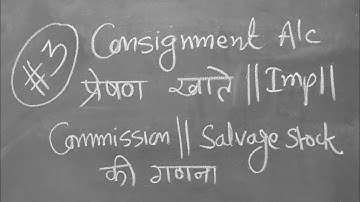 #3 Consignment A/c
प्रेषण खाते || Imp ||
Commission || Salvage Stock
की गणना